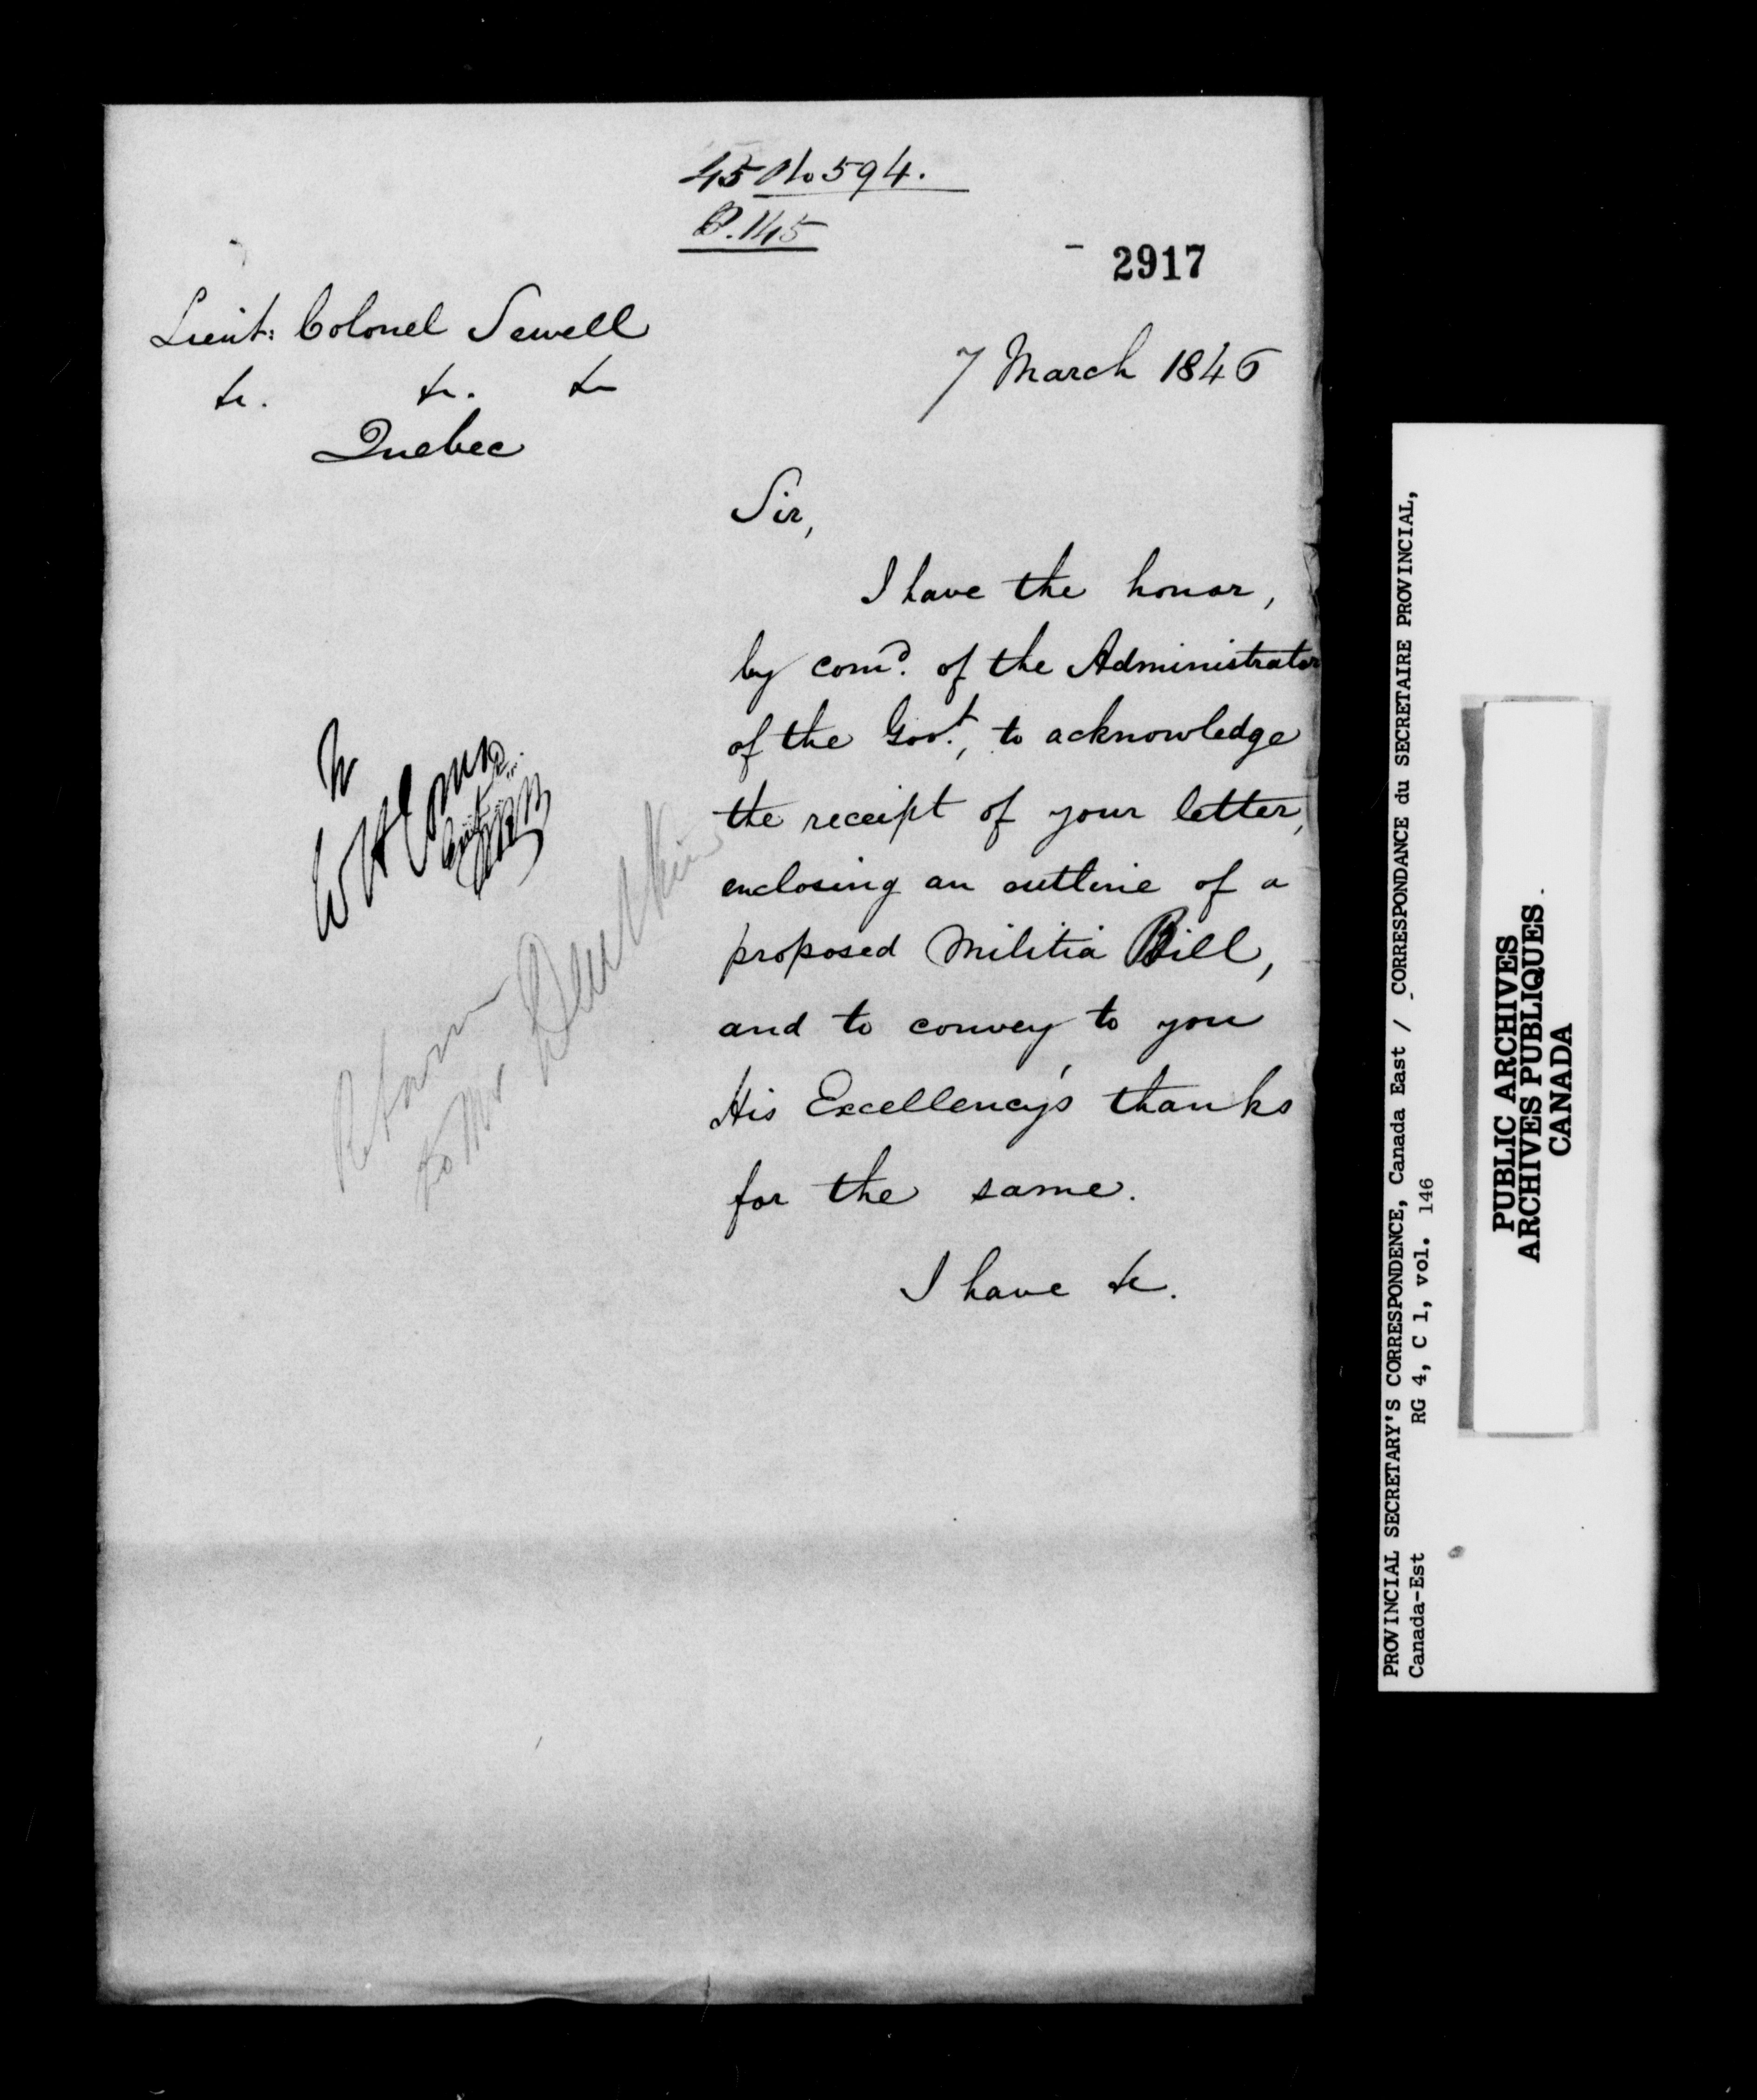 45 No 594.
P. 145
2917
Lieut: Colonel Sewell
&c. &c. &c
Quebec
7 March 1846
Sir,
I have the honor,
by comd. of the Administrator
of the Govt., to acknowledge
the receipt of your letter,
enclosing an outline of a
proposed Militia Bill,
and to convey to you
His Excellency's thanks
for the same.
I have &c.
Return
to Mr Dunkin
PROVINCIAL SECRETARY'S CORRESPONDENCE, Canada East / CORRESPONDANCE du SECRETAIRE PROVINCIAL,
Canada-Est RG 4, C 1, vol. 146
PUBLIC ARCHIVES
ARCHIVES PUBLIQUES
CANADA